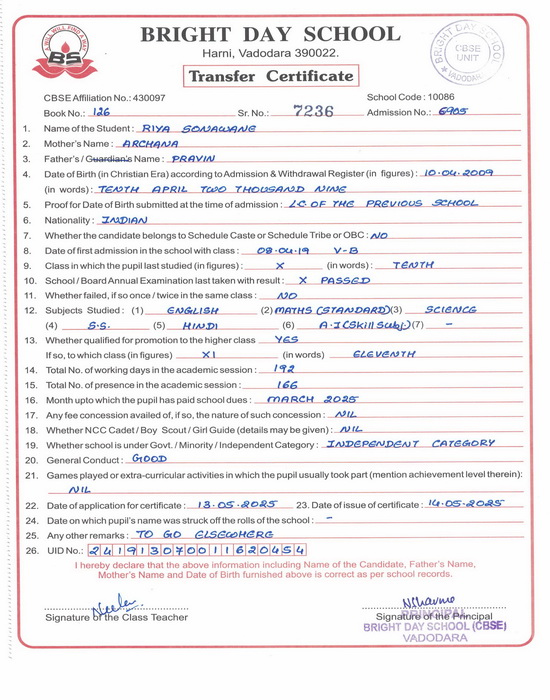 A WILL WILL FIND A WAY
BS
BRIGHT DAY SCHOOL
Harni, Vadodara 390022.
Transfer Certificate
BRIGHT DAY SCHOOL
CBSE
UNIT
VADODARA
CBSE Affiliation No.: 430097 School Code : 10086
Book No.: 126 Sr. No.: 7236 Admission No.: 6905
1. Name of the Student : RIYA SONAWANE
2. Mother's Name : ARCHANA
3. Father's / Guardian's Name : PRAVIN
4. Date of Birth (in Christian Era) according to Admission & Withdrawal Register (in figures) : 10.04.2009
(in words) : TENTH APRIL TWO THOUSAND NINE
5. Proof for Date of Birth submitted at the time of admission : LC OF THE PREVIOUS SCHOOL
6. Nationality : INDIAN
7. Whether the candidate belongs to Schedule Caste or Schedule Tribe or OBC : NO
8. Date of first admission in the school with class : 08.04.19 V-B
9. Class in which the pupil last studied (in figures) : X (in words) : TENTH
10. School / Board Annual Examination last taken with result : X PASSED
11. Whether failed, if so once / twice in the same class : NO
12. Subjects Studied : (1) ENGLISH (2) MATHS (STANDARD) (3) SCIENCE
(4) S.S. (5) HINDI (6) A.I (Skill Subj.) (7) -
13. Whether qualified for promotion to the higher class YES
If so, to which class (in figures) XI (in words) ELEVENTH
14. Total No. of working days in the academic session : 192
15. Total No. of presence in the academic session : 166
16. Month upto which the pupil has paid school dues : MARCH 2025
17. Any fee concession availed of, if so, the nature of such concession : NIL
18. Whether NCC Cadet / Boy Scout / Girl Guide (details may be given) : NIL
19. Whether school is under Govt. / Minority / Independent Category : INDEPENDENT CATEGORY
20. General Conduct : GOOD
21. Games played or extra-curricular activities in which the pupil usually took part (mention achievement level therein) :
NIL
22. Date of application for certificate : 13.05.2025 23. Date of issue of certificate : 14.05.2025
24. Date on which pupil's name was struck off the rolls of the school : -
25. Any other remarks : TO GO ELSEWHERE
26. UID No. : 241913070011620454
I hereby declare that the above information including Name of the Candidate, Father's Name,
Mother's Name and Date of Birth furnished above is correct as per school records.
Signature of the Class Teacher Signature of the Principal
PRINCIPAL
BRIGHT DAY SCHOOL (CBSE)
VADODARA